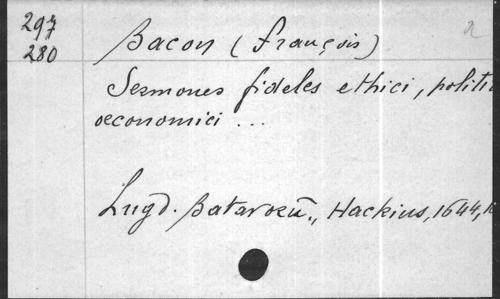 297
280
Bacon (François)
Sermones fideles ethici, politi
œconomici ...
Lugd. Batavorū., Hackius, 1644,